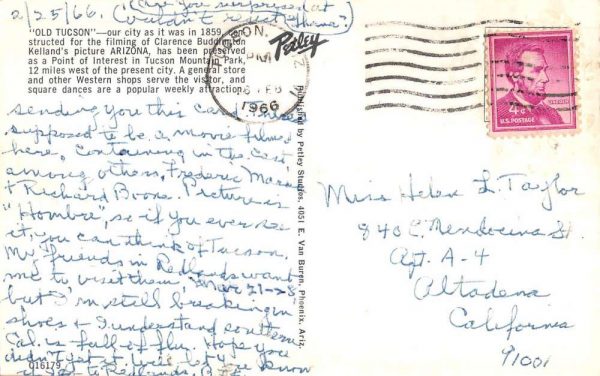 2/25/66. (Are you surprised at
couldn't resist theme?)
"OLD TUCSON"—our city as it was in 1859, con-
structed for the filming of Clarence Budington
Kelland's picture ARIZONA, has been preserved
as a Point of Interest in Tucson Mountain Park,
12 miles west of the present city. A general store
and other Western shops serve the visitor, and
square dances are a popular weekly attraction.
Petley
TUCSON, ARIZ
PM
FEB
1966
LINCOLN
4¢
U.S. POSTAGE
sending you this card. There
supposed to be a movie filmed
here, containing in the cast,
among others, Frederic March
+ Richard Boone. Picture is
"Hombre", so if you ever see
it, you can think of Tucson.
My friends in Redlands want
me to visit them, Mar 21-28
but I'm still breaking in
shoes + I understand southern
Cal. is full of flu. Hope you
didn't get it. Will let you know
to Redlands.
G16179
Published by Petley Studios, 4051 E. Van Buren, Phoenix, Ariz.
Miss Helen L. Taylor
840 E. Mendocino St.
Apt. A-4
Altadena
California
91001